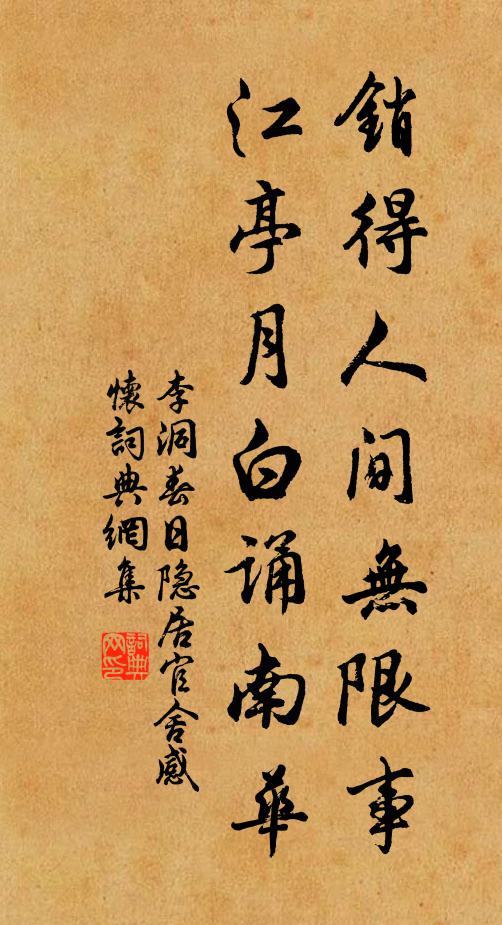 銷得人間無限事
江亭月白誦南華
李洞春日隐居官舍感
懷詞典網集
詞典網印